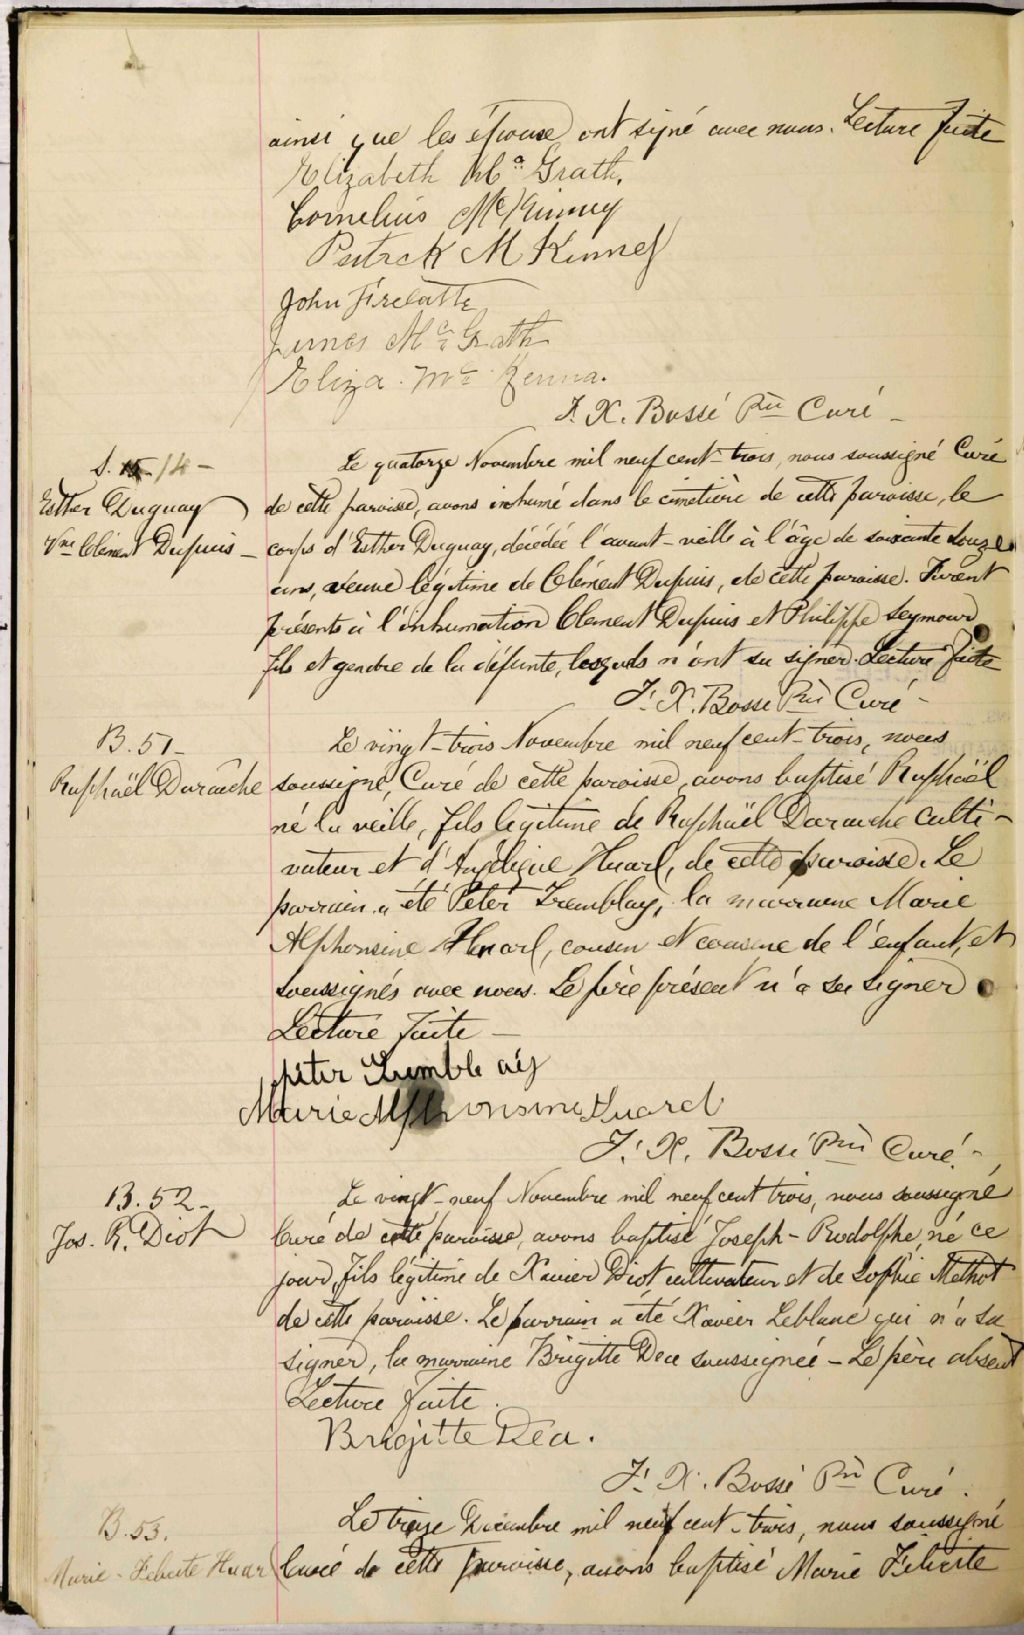 ainsi que les épouse ont signé avec nous. Lecture faite
Elizabeth Mc Grath,
Cornelius McKinney
Patrck M Kinney
John
James Mc Grath
Eliza. Mc Kenna.
F. X. Bossé Ptre Curé -
S. 14 -
Esther Duguay
Vve Clément Dupuis -
Le quatorze Novembre mil neuf cent-trois, nous soussigné Curé
de cette paroisse, avons inhumé dans le cimetière de cette paroisse, le
corps d'Esther Duguay, décédée l'avant-veille à l'âge de soixante
ans, veuve légitime de Clément Dupuis, de cette paroisse. Furent
présents à l'inhumation Clement Dupuis et Philippe Seymour
fils et gendre de la défunte, lesquels n'ont su signer. Lecture faite
F. X. Bossé Ptre Curé -
B. 51 -
Raphaël Darâche
Le vingt-trois Novembre mil neuf cent-trois, nous
soussigné, Curé de cette paroisse, avons baptisé Raphaël
né la veille, fils légitime de Raphaël Darauche culti-
vateur et d'Angélique Huard, de cette paroisse. Le
parrain a été Peter Tremblay, la marraine Marie
Alphonsine Huard, cousin et cousine de l'enfant, et
soussignés avec nous. Le père présent n'a su signer
Lecture faite -
piter Trumble aiy
Marie Alphonsine Huard
F. X. Bossé Ptre Curé -
B. 52 -
Jos. R. Diot
Le vingt-neuf Novembre mil neuf cent trois, nous soussigné
Curé de cette paroisse, avons baptisé Joseph-Rodolphe, né ce
jour, fils légitime de Xavier Diot, cultivateur et de Sophie Methot
de cette paroisse. Le parrain a été Xavier Leblanc qui n'a su
signer, la marraine Brigitte Dea soussignée - Le père absent
Lecture faite.
Brigitte Dea.
F. X. Bossé Ptre Curé.
B. 53.
Marie-Felicite Huar
Le treize Décembre mil neuf cent-trois, nous soussigné
Curé de cette paroisse, avons baptisé Marie Félicite